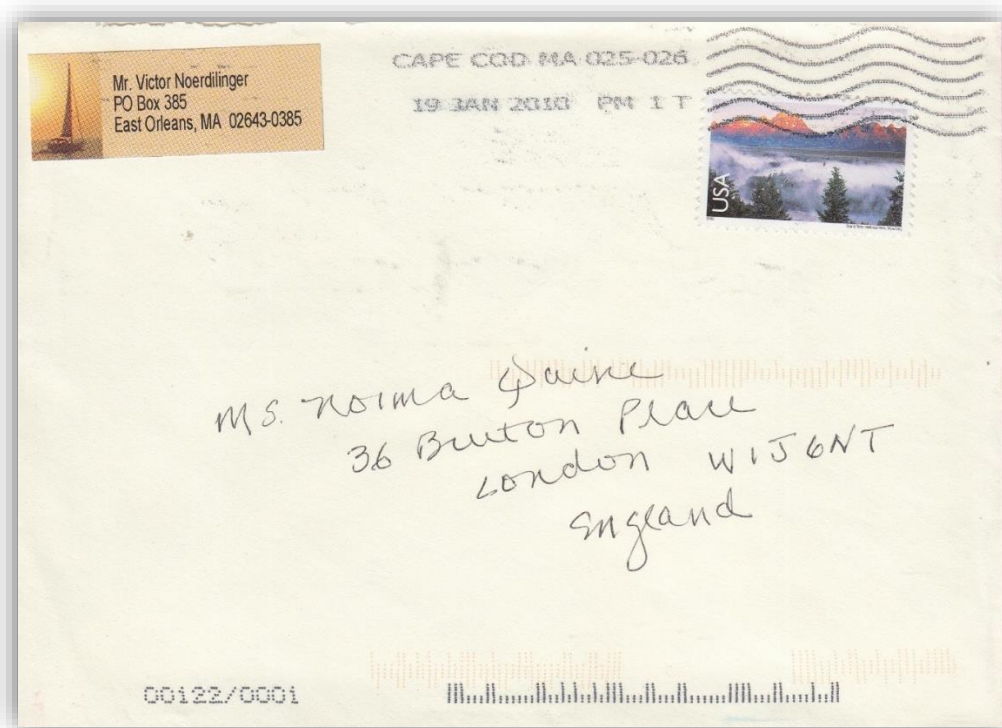 Mr. Victor Noerdilinger
PO Box 385
East Orleans, MA 02643-0385
CAPE COD MA 025-026
19 JAN 2010 PM 1 T
USA
Ms. Norma
36 Bruton Place
London W1J 6NT
England
00122/0001